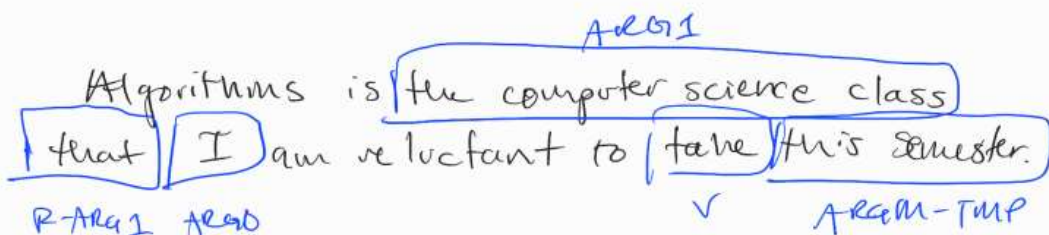 ARG1
Algorithms is the computer science class
that I am reluctant to take this semester.
R-ARG1 ARG0 V ARGM-TMP